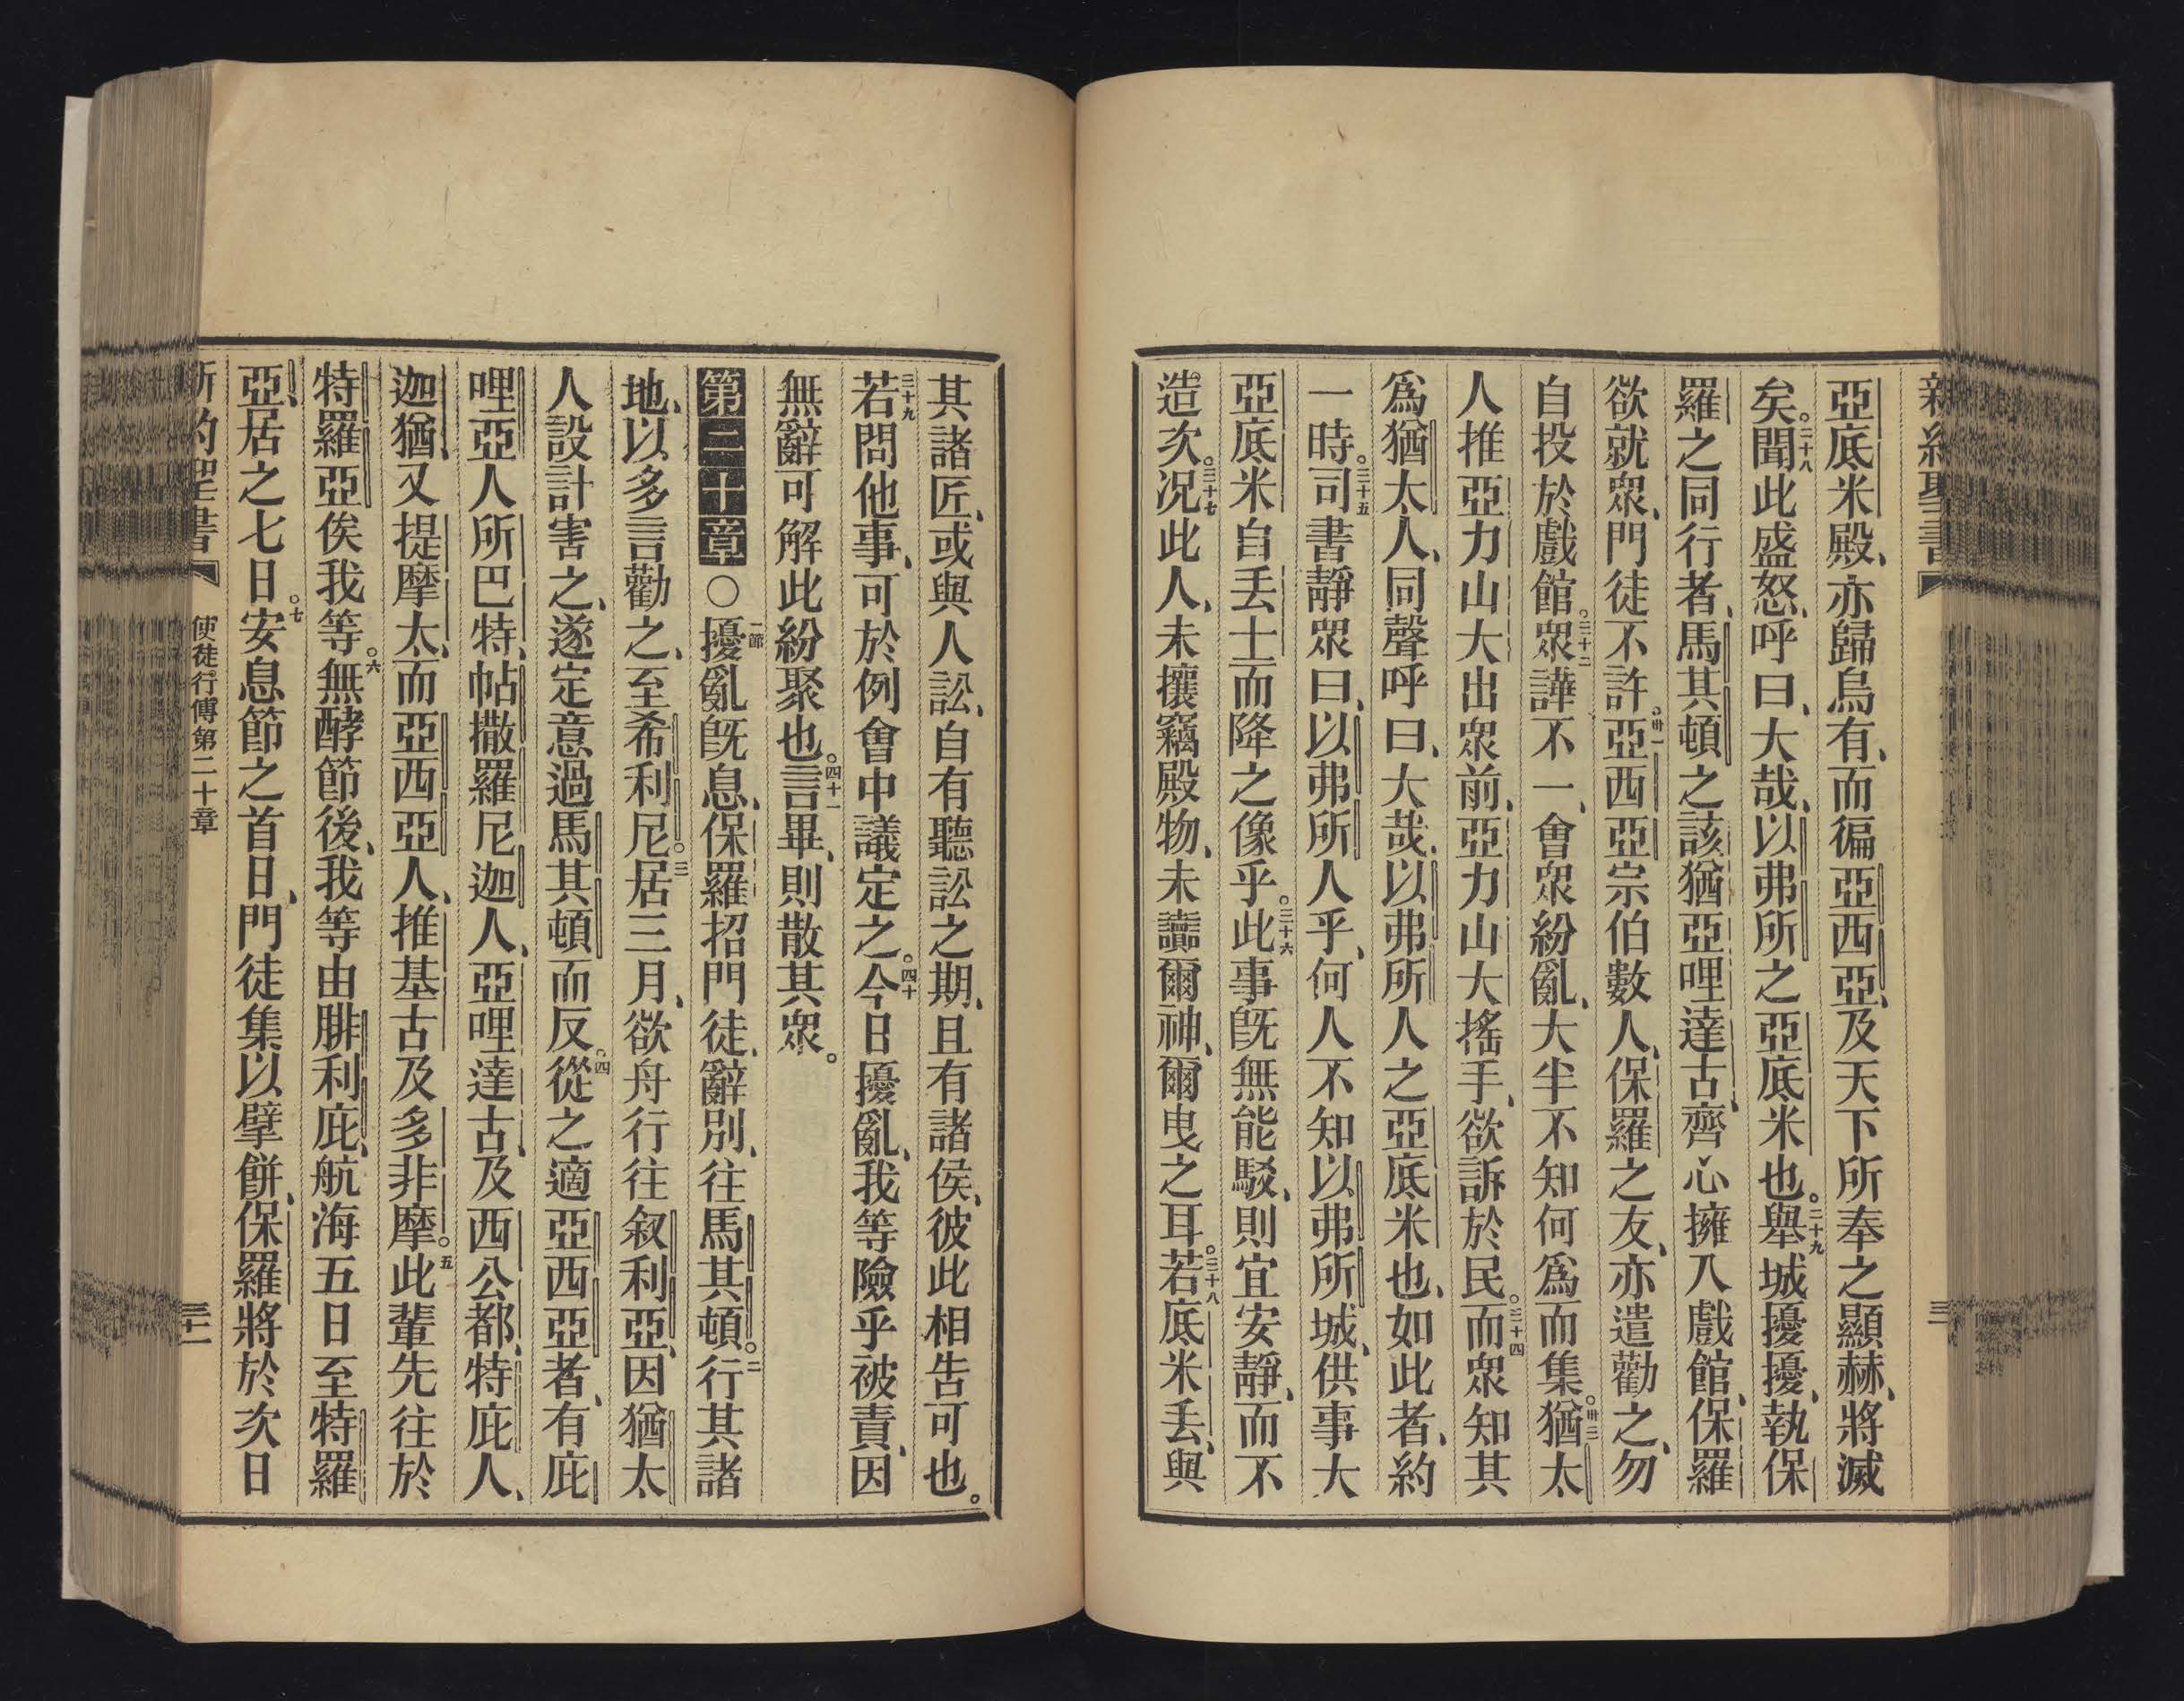 新約聖書
三
亞底米殿、亦歸烏有、而徧亞西亞、及天下所奉之顯赫、將滅
矣。二十八聞此盛怒、呼曰、大哉、以弗所之亞底米也。二十九舉城擾擾、執保
羅之同行者、馬其頓之該猶亞哩達古、齊心擁入戲館、保羅
欲就眾、門徒不許。卅一亞西亞宗伯數人、保羅之友、亦遣勸之、勿
自投於戲館。三十二眾譁不一、會眾紛亂、大半不知何爲而集。卅三猶太
人推亞力山大出眾前、亞力山大搖手、欲訴於民。三十四而眾知其
爲猶太人、同聲呼曰、大哉、以弗所人之亞底米也、如此者、約
一時。三十五司書靜眾曰、以弗所人乎、何人不知以弗所城、供事大
亞底米自丟士而降之像乎。三十六此事旣無能駁、則宜安靜、而不
造次。三十七况此人、未攘竊殿物、未讟爾神、爾曳之耳。三十八若底米丟、與
其諸匠、或與人訟、自有聽訟之期、且有諸侯、彼此相告可也。
三十九若問他事、可於例會中議定之。四十今日擾亂、我等險乎被責、因
無辭可解此紛聚也。四十一言畢、則散其眾。
第二十章○一節擾亂旣息、保羅招門徒、辭別、往馬其頓。二行其諸
地、以多言勸之、至希利尼。三居三月、欲舟行往叙利亞、因猶太
人設計害之、遂定意過馬其頓而反。四從之適亞西亞者、有庇
哩亞人所巴特、帖撒羅尼迦人、亞哩達古、及西公都、特庇人、
迦猶、又提摩太、而亞西亞人、推基古及多非摩。五此輩先往於
特羅亞俟我等。六無酵節後、我等由腓利庇、航海五日至特羅
亞、居之七日。七安息節之首日、門徒集以擘餅、保羅將於次日
新約聖書
使徒行傳第二十章
三十一